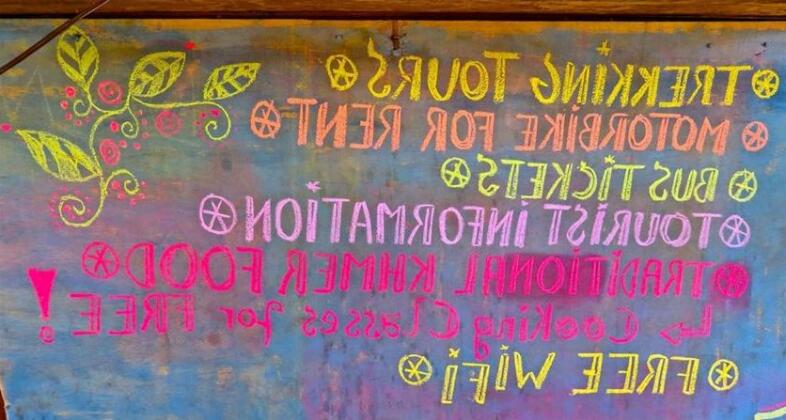 TREKKING TOURS
MOTORBIKE FOR RENT
BUS TICKETS
TOURIST INFORMATION
TRADITIONAL KHMER FOOD
↳ Cooking Classes for FREE!
FREE WiFi